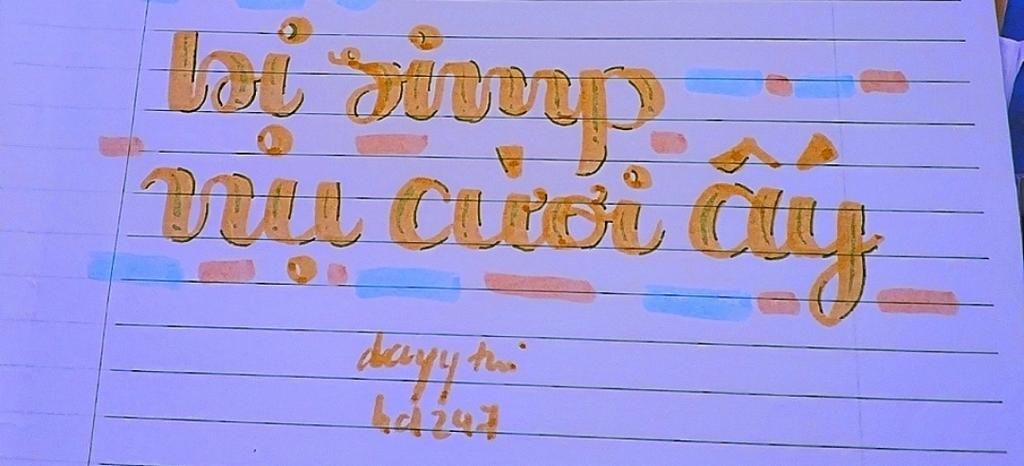 bị simp
nụ cười ấy
dayy thi
hd247